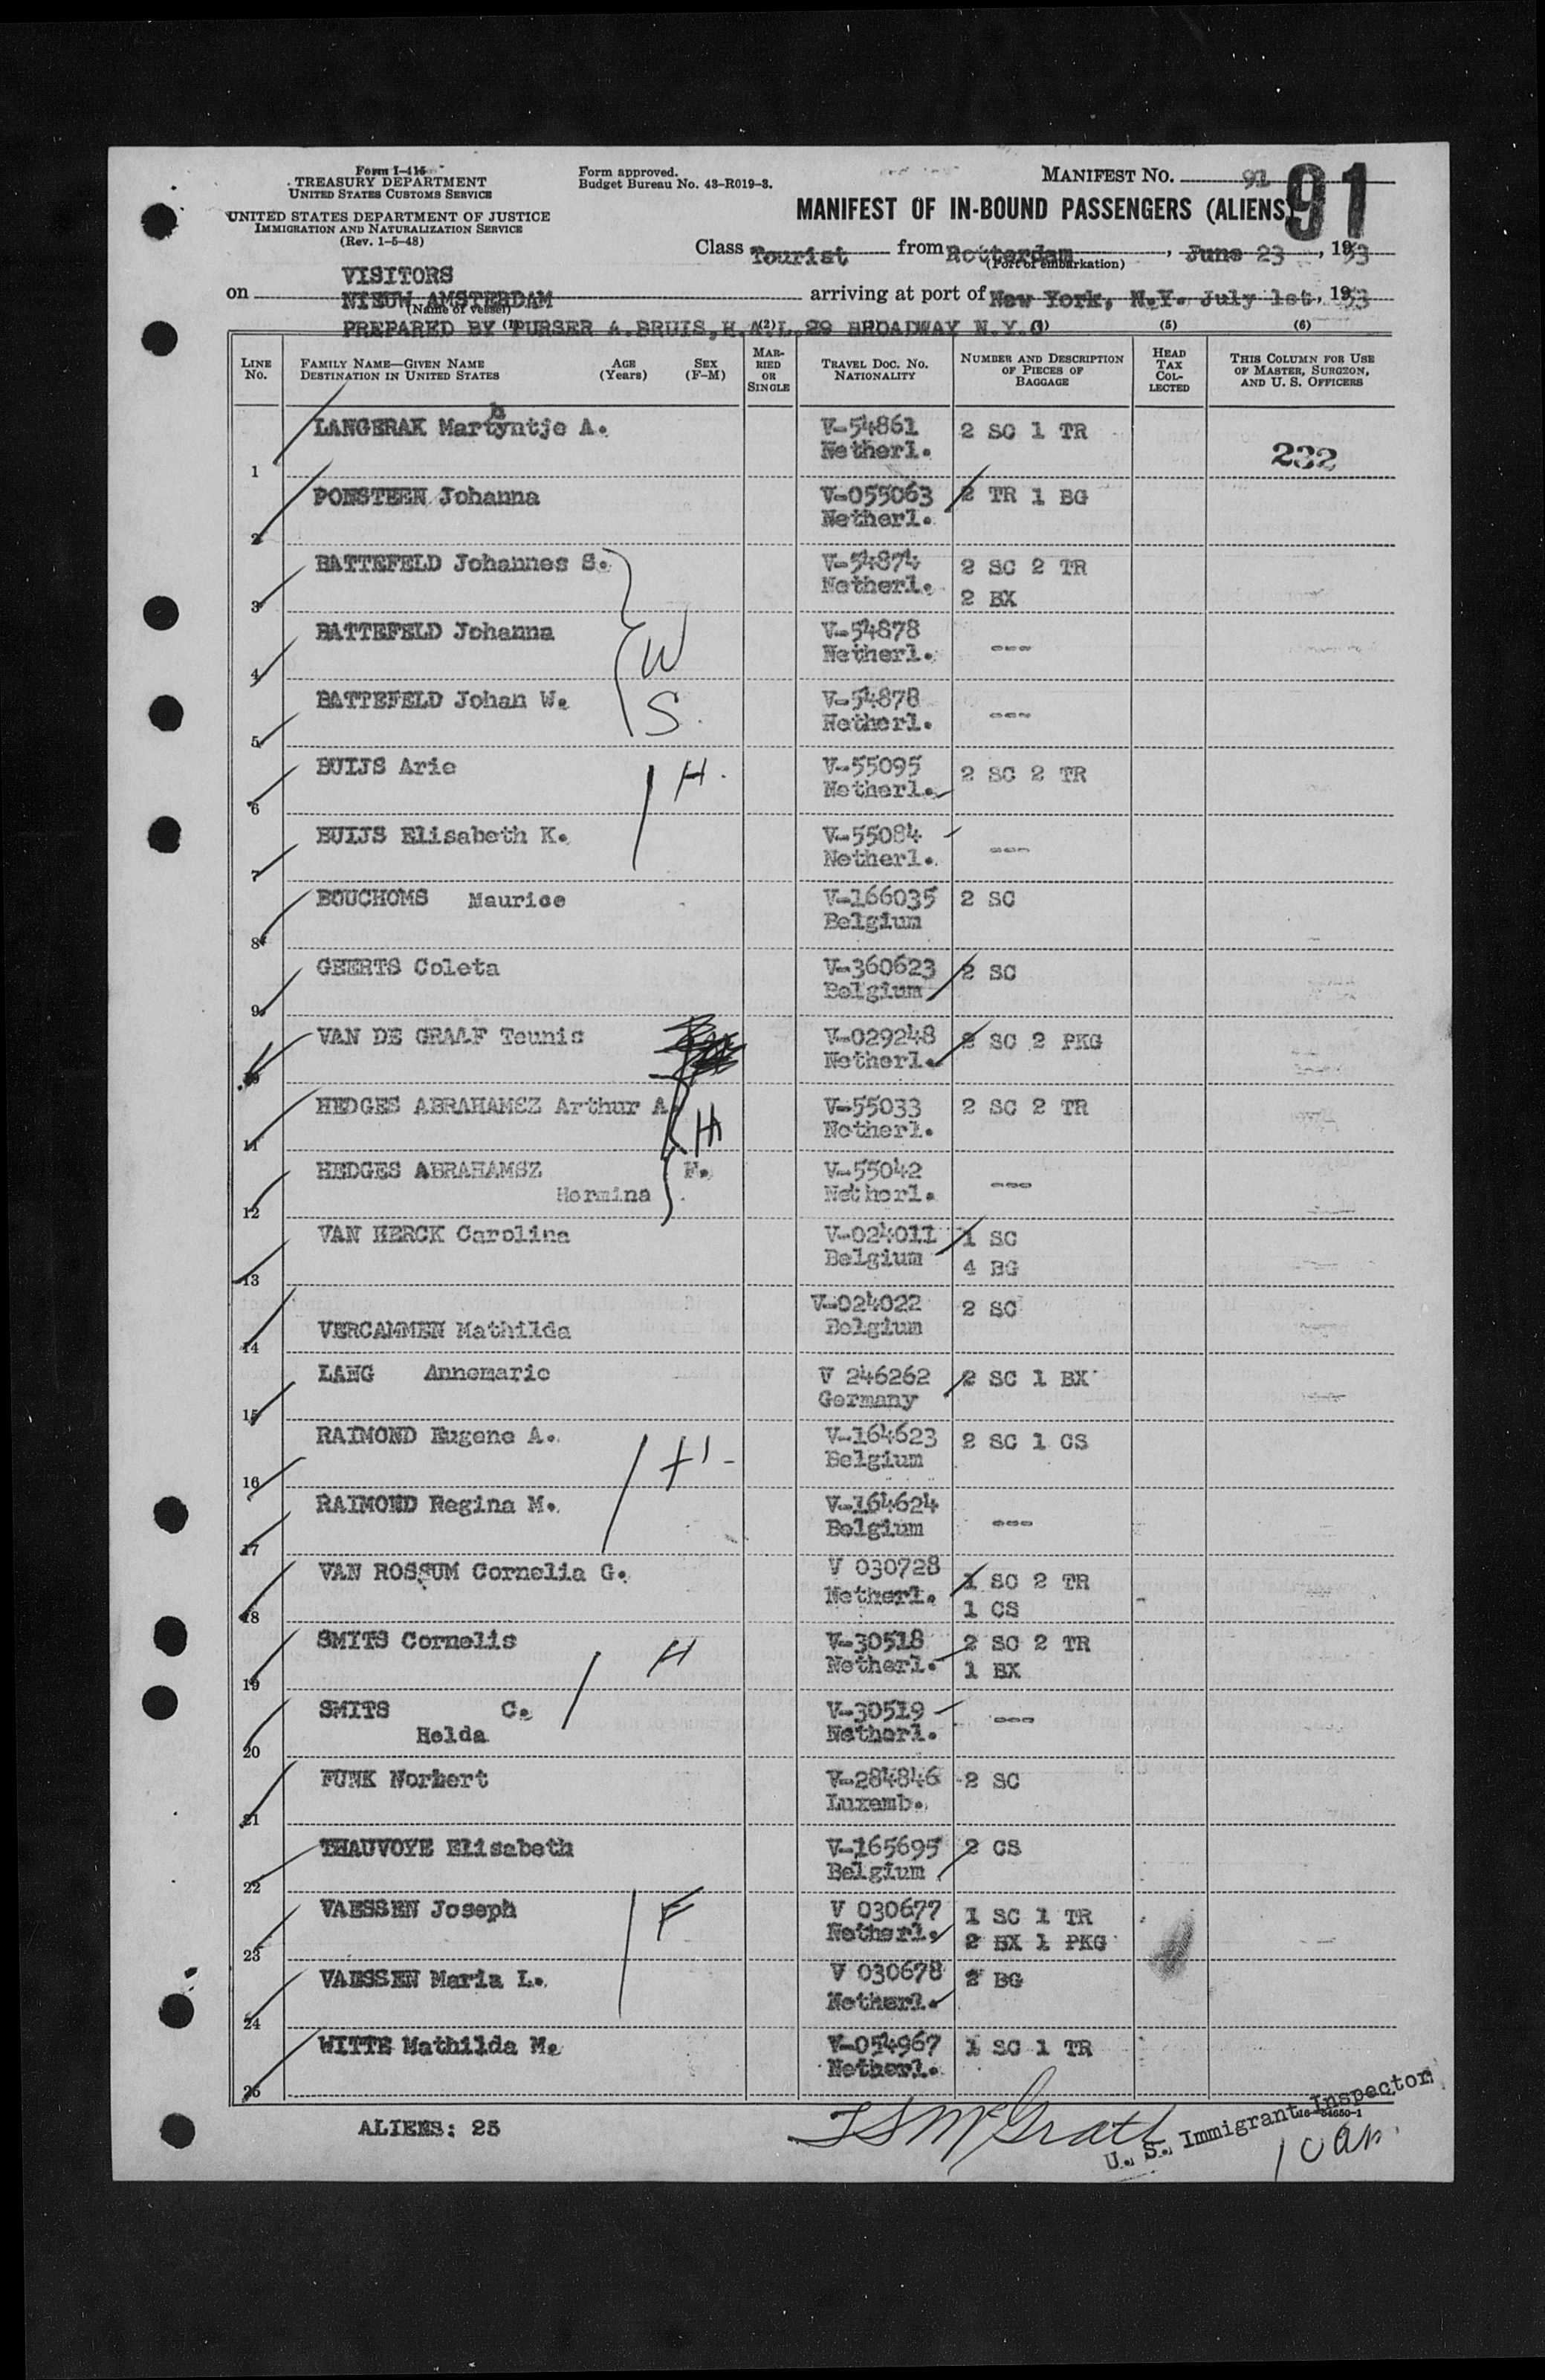 Form I-415
TREASURY DEPARTMENT
UNITED STATES CUSTOMS SERVICE
UNITED STATES DEPARTMENT OF JUSTICE
IMMIGRATION AND NATURALIZATION SERVICE
(Rev. 1-5-48)
Form approved.
Budget Bureau No. 43-R019-3.
MANIFEST NO. 91
91
MANIFEST OF IN-BOUND PASSENGERS (ALIENS)
Class Tourist from Rotterdam, June 23, 1953
(Port of embarkation)
VISITORS
on NIEUW AMSTERDAM arriving at port of New York, N.Y. July 1st, 1953
(Name of vessel)
PREPARED BY PURSER A.BRUIS, H.A.L. 29 BROADWAY N.Y.C
(1) (2) (3) (5) (6)
LINE No. FAMILY NAME—GIVEN NAME DESTINATION IN UNITED STATES AGE (Years) SEX (F-M) MARRIED OR SINGLE TRAVEL DOC. NO. NATIONALITY NUMBER AND DESCRIPTION OF PIECES OF BAGGAGE HEAD TAX COLLECTED THIS COLUMN FOR USE OF MASTER, SURGEON, AND U. S. OFFICERS
1 LANGERAK Martyntje A. V-54861 Netherl. 2 SC 1 TR 232
2 PONSTEEN Johanna V-055063 Netherl. 2 TR 1 BG
3 BATTEFELD Johannes S. V-54874 Netherl. 2 SC 2 TR 2 BX
4 BATTEFELD Johanna W V-54878 Netherl. ---
5 BATTEFELD Johan W. S. V-54878 Netherl. ---
6 BUIJS Arie H. V-55095 Netherl. 2 SC 2 TR
7 BUIJS Elisabeth K. V-55084 Netherl. ---
8 BOUCHOMS Maurice V-166035 Belgium 2 SC
9 GEERTS Coleta V-360623 Belgium 2 SC
10 VAN DE GRAAF Teunis V-029248 Netherl. 2 SC 2 PKG
11 HEDGES ABRAHAMSZ Arthur A. H V-55033 Netherl. 2 SC 2 TR
12 HEDGES ABRAHAMSZ Hermina F. V-55042 Netherl. ---
13 VAN HERCK Carolina V-024011 Belgium 1 SC 4 BG
14 VERCAMMEN Mathilda V-024022 Belgium 2 SC
15 LANG Annemarie V 246262 Germany 2 SC 1 BX
16 RAIMOND Eugene A. H V-164623 Belgium 2 SC 1 CS
17 RAIMOND Regina M. V-164624 Belgium ---
18 VAN ROSSUM Cornelia G. V 030728 Netherl. 1 SC 2 TR 1 CS
19 SMITS Cornelis H V-30518 Netherl. 2 SC 2 TR 1 BX
20 SMITS C. Helda V-30519 Netherl. ---
21 FUNK Norbert V-284846 Luxemb. 2 SC
22 THAUVOYE Elisabeth V-165695 Belgium 2 CS
23 VAESSEN Joseph F V 030677 Netherl. 1 SC 1 TR 2 BX 1 PKG
24 VAESSEN Maria L. V 030678 Netherl. 2 BG
25 WITTE Mathilda M. V-054967 Netherl. 1 SC 1 TR
ALIENS: 25
McGrath
U. S. Immigrant Inspector